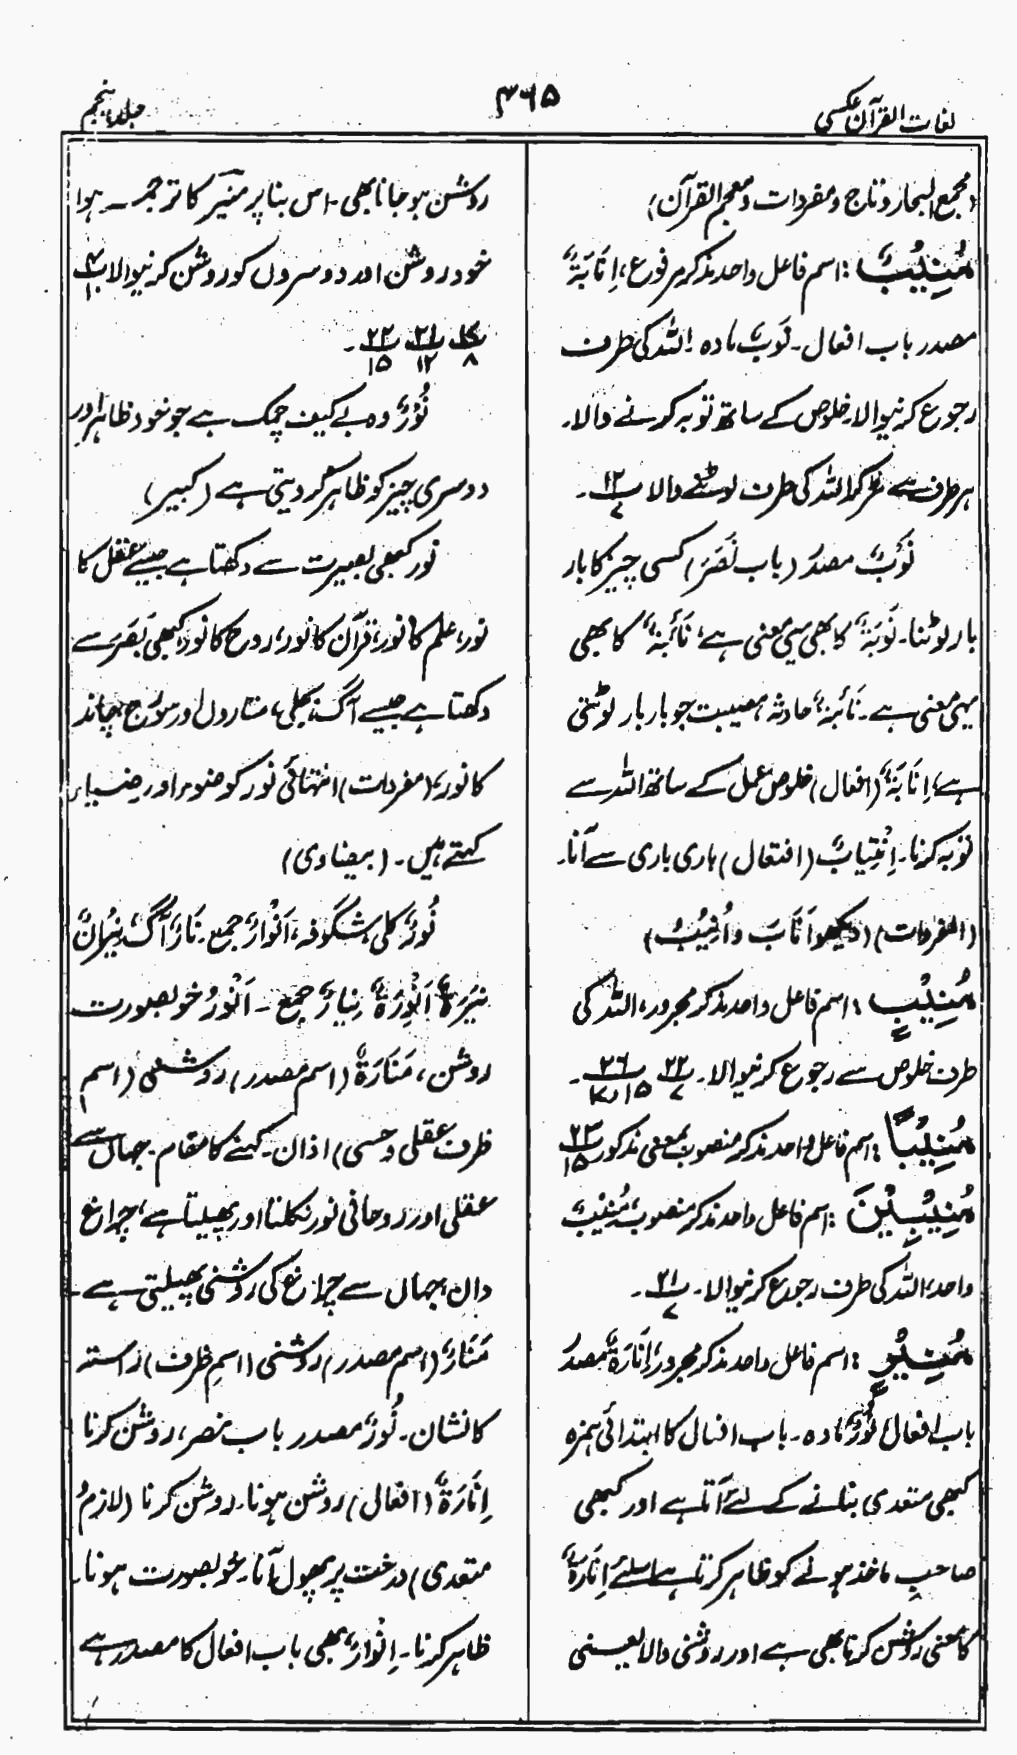 لغات القرآن عکسی
۴۶۵
جلد پنجم
(مجمع البحار و تاج و مفردات و معجم القرآن)
مُنِیْبٌ: اسم فاعل واحد مذکر مرفوع، اِنَابَۃٌ
مصدر باب افعال۔ نَوْبٌ مادہ۔ اللہ کی طرف
رجوع کرنیوالا۔ خلوص کے ساتھ توبہ کرنے والا۔
ہر طرف سے مڑ کر اللہ کی طرف لوٹنے والا پ۱۲/۷۔
نَوْبٌ مصدر (باب نَصَرَ) کسی چیز کا بار
بار لوٹنا۔ نَوْبَۃٌ کا بھی یہی معنی ہے، نَائِبَۃٌ کا بھی
یہی معنی ہے۔ نَائِبَۃٌ حادثہ، مصیبت جو بار بار لوٹتی
ہے، اِنَابَۃٌ (افعال) خلوص عمل کے ساتھ اللہ سے
توبہ کرنا۔ اِنْتِیَابٌ (افتعال) باری باری سے آنا۔
(المفردات) (دیکھو اَنَابَ و اُنِیْبُ)
مُنِیْبٍ: اسم فاعل واحد مذکر مجرور، اللہ کی
طرف خلوص سے رجوع کرنیوالا۔ پ۲۲/۷ پ۲۶/۱۵
مُنِیْبًا: اسم فاعل واحد مذکر منصوب بمعنی مذکور پ۲۳/۱۵
مُنِیْبِیْنَ: اسم فاعل واحد مذکر منصوب، مُنِیْبٌ
واحد، اللہ کی طرف رجوع کرنیوالا۔ پ۲۱/۷۔
مُنِیْرٍ: اسم فاعل واحد مذکر مجرور، اِنَارَۃٌ مصدر
باب افعال، نُوْرٌ مادہ۔ باب افعال کا ابتدائی ہمزہ
کبھی متعدی بنانے کے لئے آتا ہے اور کبھی
صاحبِ ماخذ ہونے کو ظاہر کرتا ہے اسلئے اِنَارَۃٌ
کا معنی روشن کرنا بھی ہے اور روشنی والا یعنی
روشن ہو جانا بھی۔ اس بنا پر مُنِیْر کا ترجمہ ہوا
خود روشن اور دوسروں کو روشن کرنیوالا پ۴/۱۰
پ۱۷/۸ پ۲۱/۱۲ پ۲۲/۱۵۔
نُوْرٌ وہ بے کیف چمک ہے جو خود ظاہر اور
دوسری چیز کو ظاہر کر دیتی ہے (کبیر)
نور کبھی بصیرت سے دکھتا ہے جیسے عقل کا
نور، علم کا نور، قرآن کا نور، روح کا نور، کبھی بَصَر سے
دکھتا ہے جیسے آگ، بجلی، ستاروں اور سورج، چاند
کا نور، (مفردات) انتہائی نور کو ضوء اور ضیاء
کہتے ہیں۔ (بیضاوی)
نُوْرٌ کلی، شگوفہ، اَنْوَارٌ جمع۔ نَارٌ آگ، نِیْرَانٌ
نِیَرَۃٌ اَنْوِرَۃٌ نِیَارٌ جمع۔ اَنْوَرُ خوبصورت
روشن، مَنَارَۃٌ (اسم مصدر) روشنی (اسم
ظرف عقلی و حسی) اذان۔ کہنے کا مقام۔ جہاں سے
عقلی اور روحانی نور نکلتا اور پھیلتا ہے، چراغ
دان، جہاں سے چراغ کی روشنی پھیلتی ہے۔
مَنَارٌ (اسم مصدر) روشنی (اسمِ ظرف) راستہ
کا نشان۔ نُوْرٌ مصدر باب نصر، روشن کرنا
اِنَارَۃٌ (افعال) روشن ہونا۔ روشن کرنا (لازم و
متعدی) درخت پر پھول آنا۔ خوبصورت ہونا۔
ظاہر کرنا۔ اِنْوَارٌ بھی باب افعال کا مصدر ہے